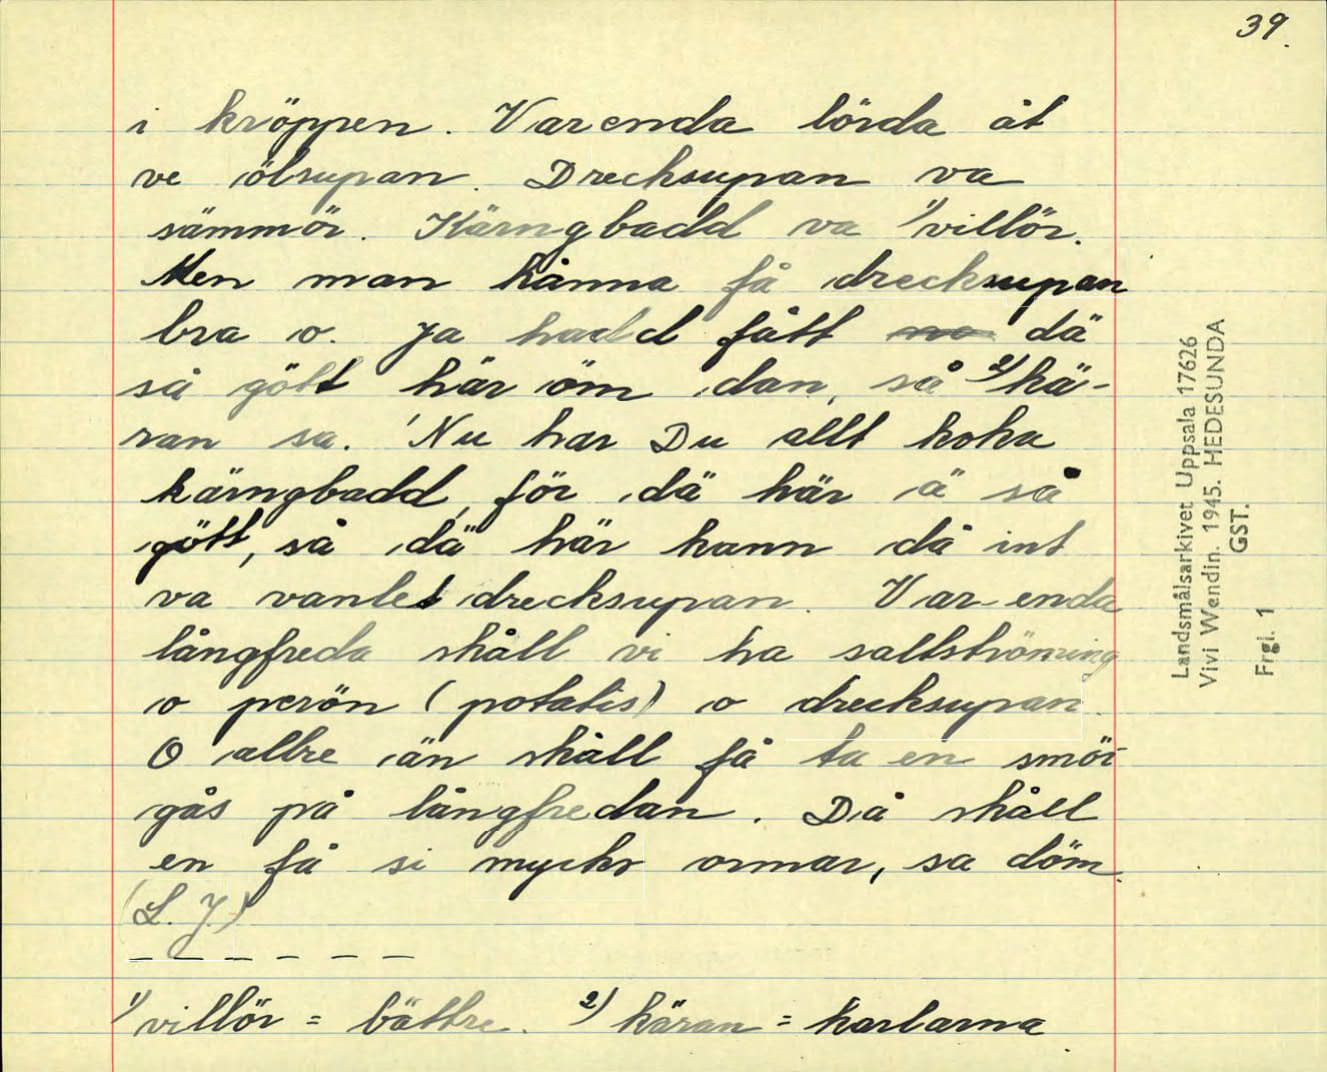 39.
i kröppen. Varenda lörda åt
ve ölsupan. Drecksupan va
sämmör. Kärngbadd va 1) villör.
Men man kånna få drecksupan
bra o. Ja hadd fått dä
så gött här öm dan, så 2) kä-
ran sa. 'Nu har Du allt koka
kärngbadd, för dä här ä så
gött, så dä här kann då int
va vanlet drecksupan. Varenda
långfreda skåll vi ha saltströming
o perön (potatis) o drecksupan.
O allre än skåll få ta en smör-
gås på långfredan. Då skåll
en få si mycke ormar, sa döm.
(L. J.)
_ _ _ _ _ _
1) villör = bättre. 2) käran = karlarna
Landsmålsarkivet Uppsala 17626
Vivi Wendin. 1945. HEDESUNDA
GST.
Frgl. 1